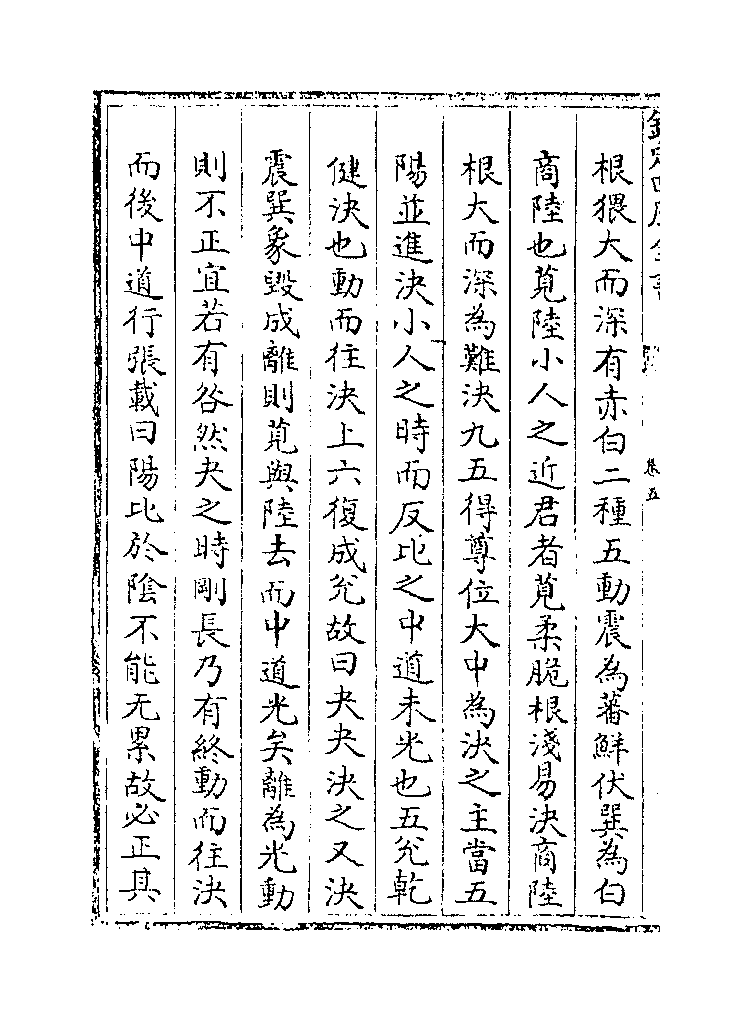 根猥大而深有赤白二種五動震為蕃鮮伏巽為白
商陸也莧陸小人之近君者莧柔脆根淺易決商陸
根大而深為難決九五得尊位大中為決之主當五
陽並進決小人之時而反比之中道未光也五兊乾
健決也動而往決上六復成兊故曰夬夬決之又決
震巽象毀成離則莧與陸去而中道光矣離為光動
則不正宜若有咎然夬之時剛長乃有終動而往決
而後中道行張載曰陽比於陰不能无累故必正其
卷五